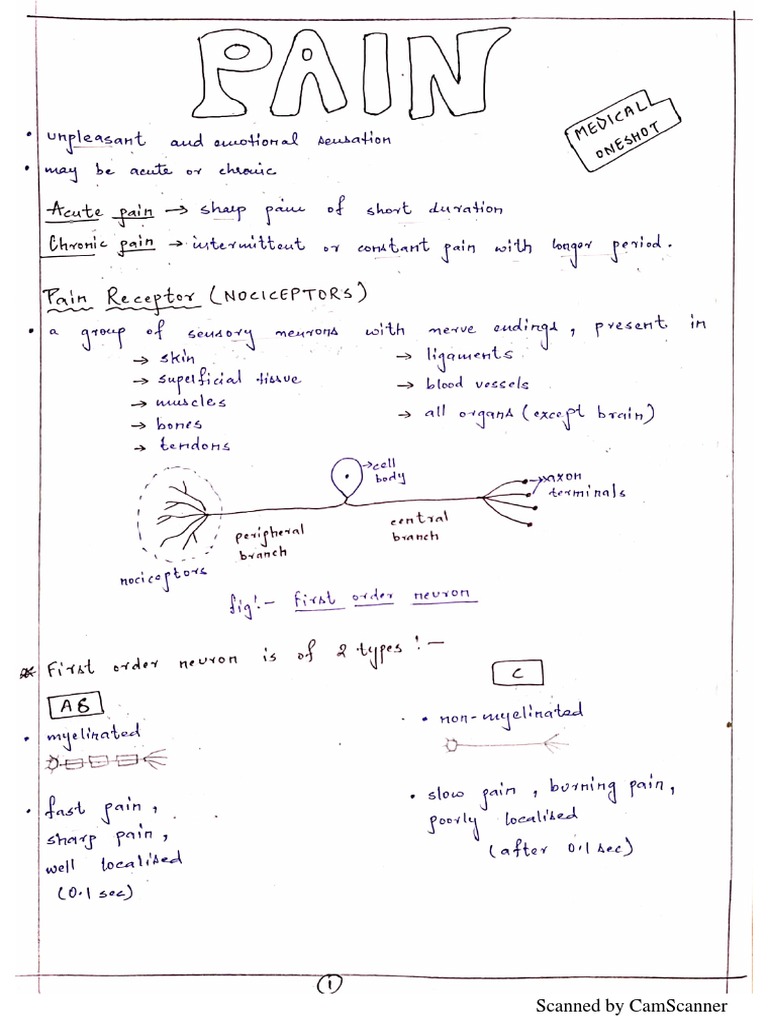 PAIN
MEDICAL
ONESHOT
• unpleasant and emotional sensation
• may be acute or chronic
Acute pain → sharp pain of short duration
Chronic pain → intermittent or constant pain with longer period.
Pain Receptor (NOCICEPTORS)
• a group of sensory neurons with nerve endings, present in
→ skin
→ superficial tissue
→ muscles
→ bones
→ tendons
→ ligaments
→ blood vessels
→ all organs (except brain)
→ cell
body
axon
terminals
peripheral
branch
central
branch
nociceptors
fig:- First order neuron
* First order neuron is of 2 types:-
Aδ
• myelinated
• fast pain,
sharp pain,
well localised
(0.1 sec)
C
• non-myelinated
• slow pain, burning pain,
poorly localised
(after 0.1 sec)
1
Scanned by CamScanner